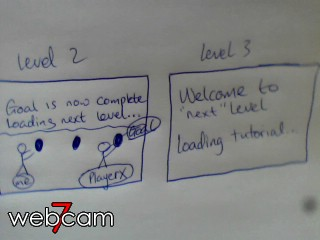 Level 2
Goal is now complete
Loading next level...
Goal
me
Playerx
Level 3
Welcome to
"next" Level
Loading tutorial...
webcam 7